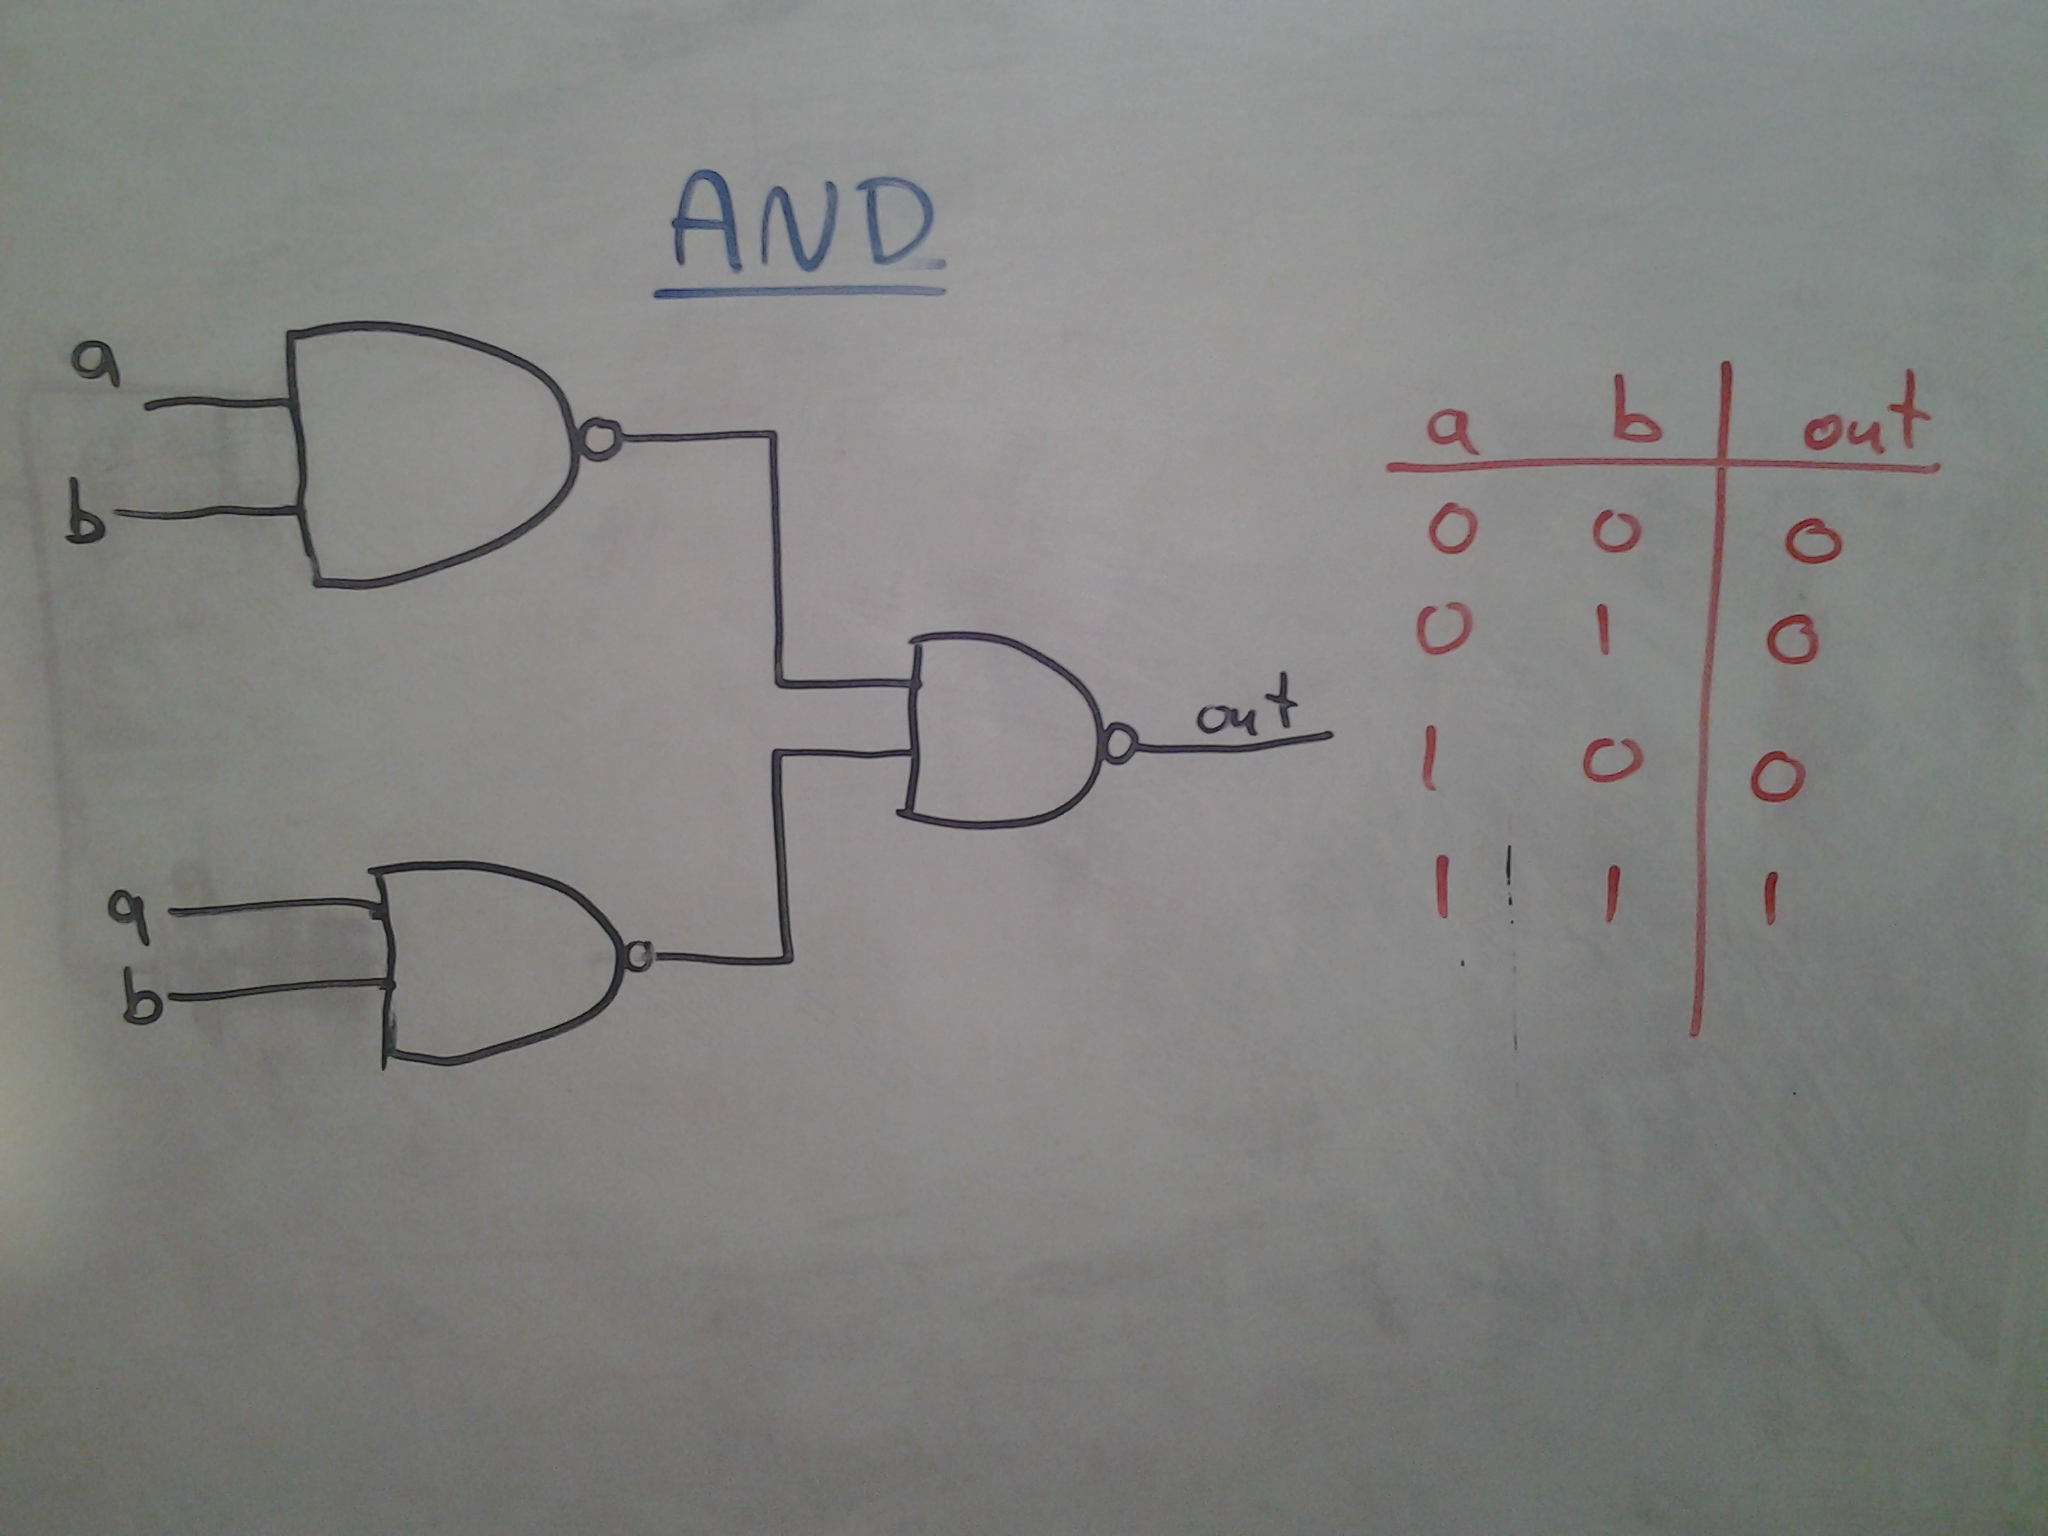 AND
a
b
a
b
out
a b out
0 0 0
0 1 0
1 0 0
1 1 1